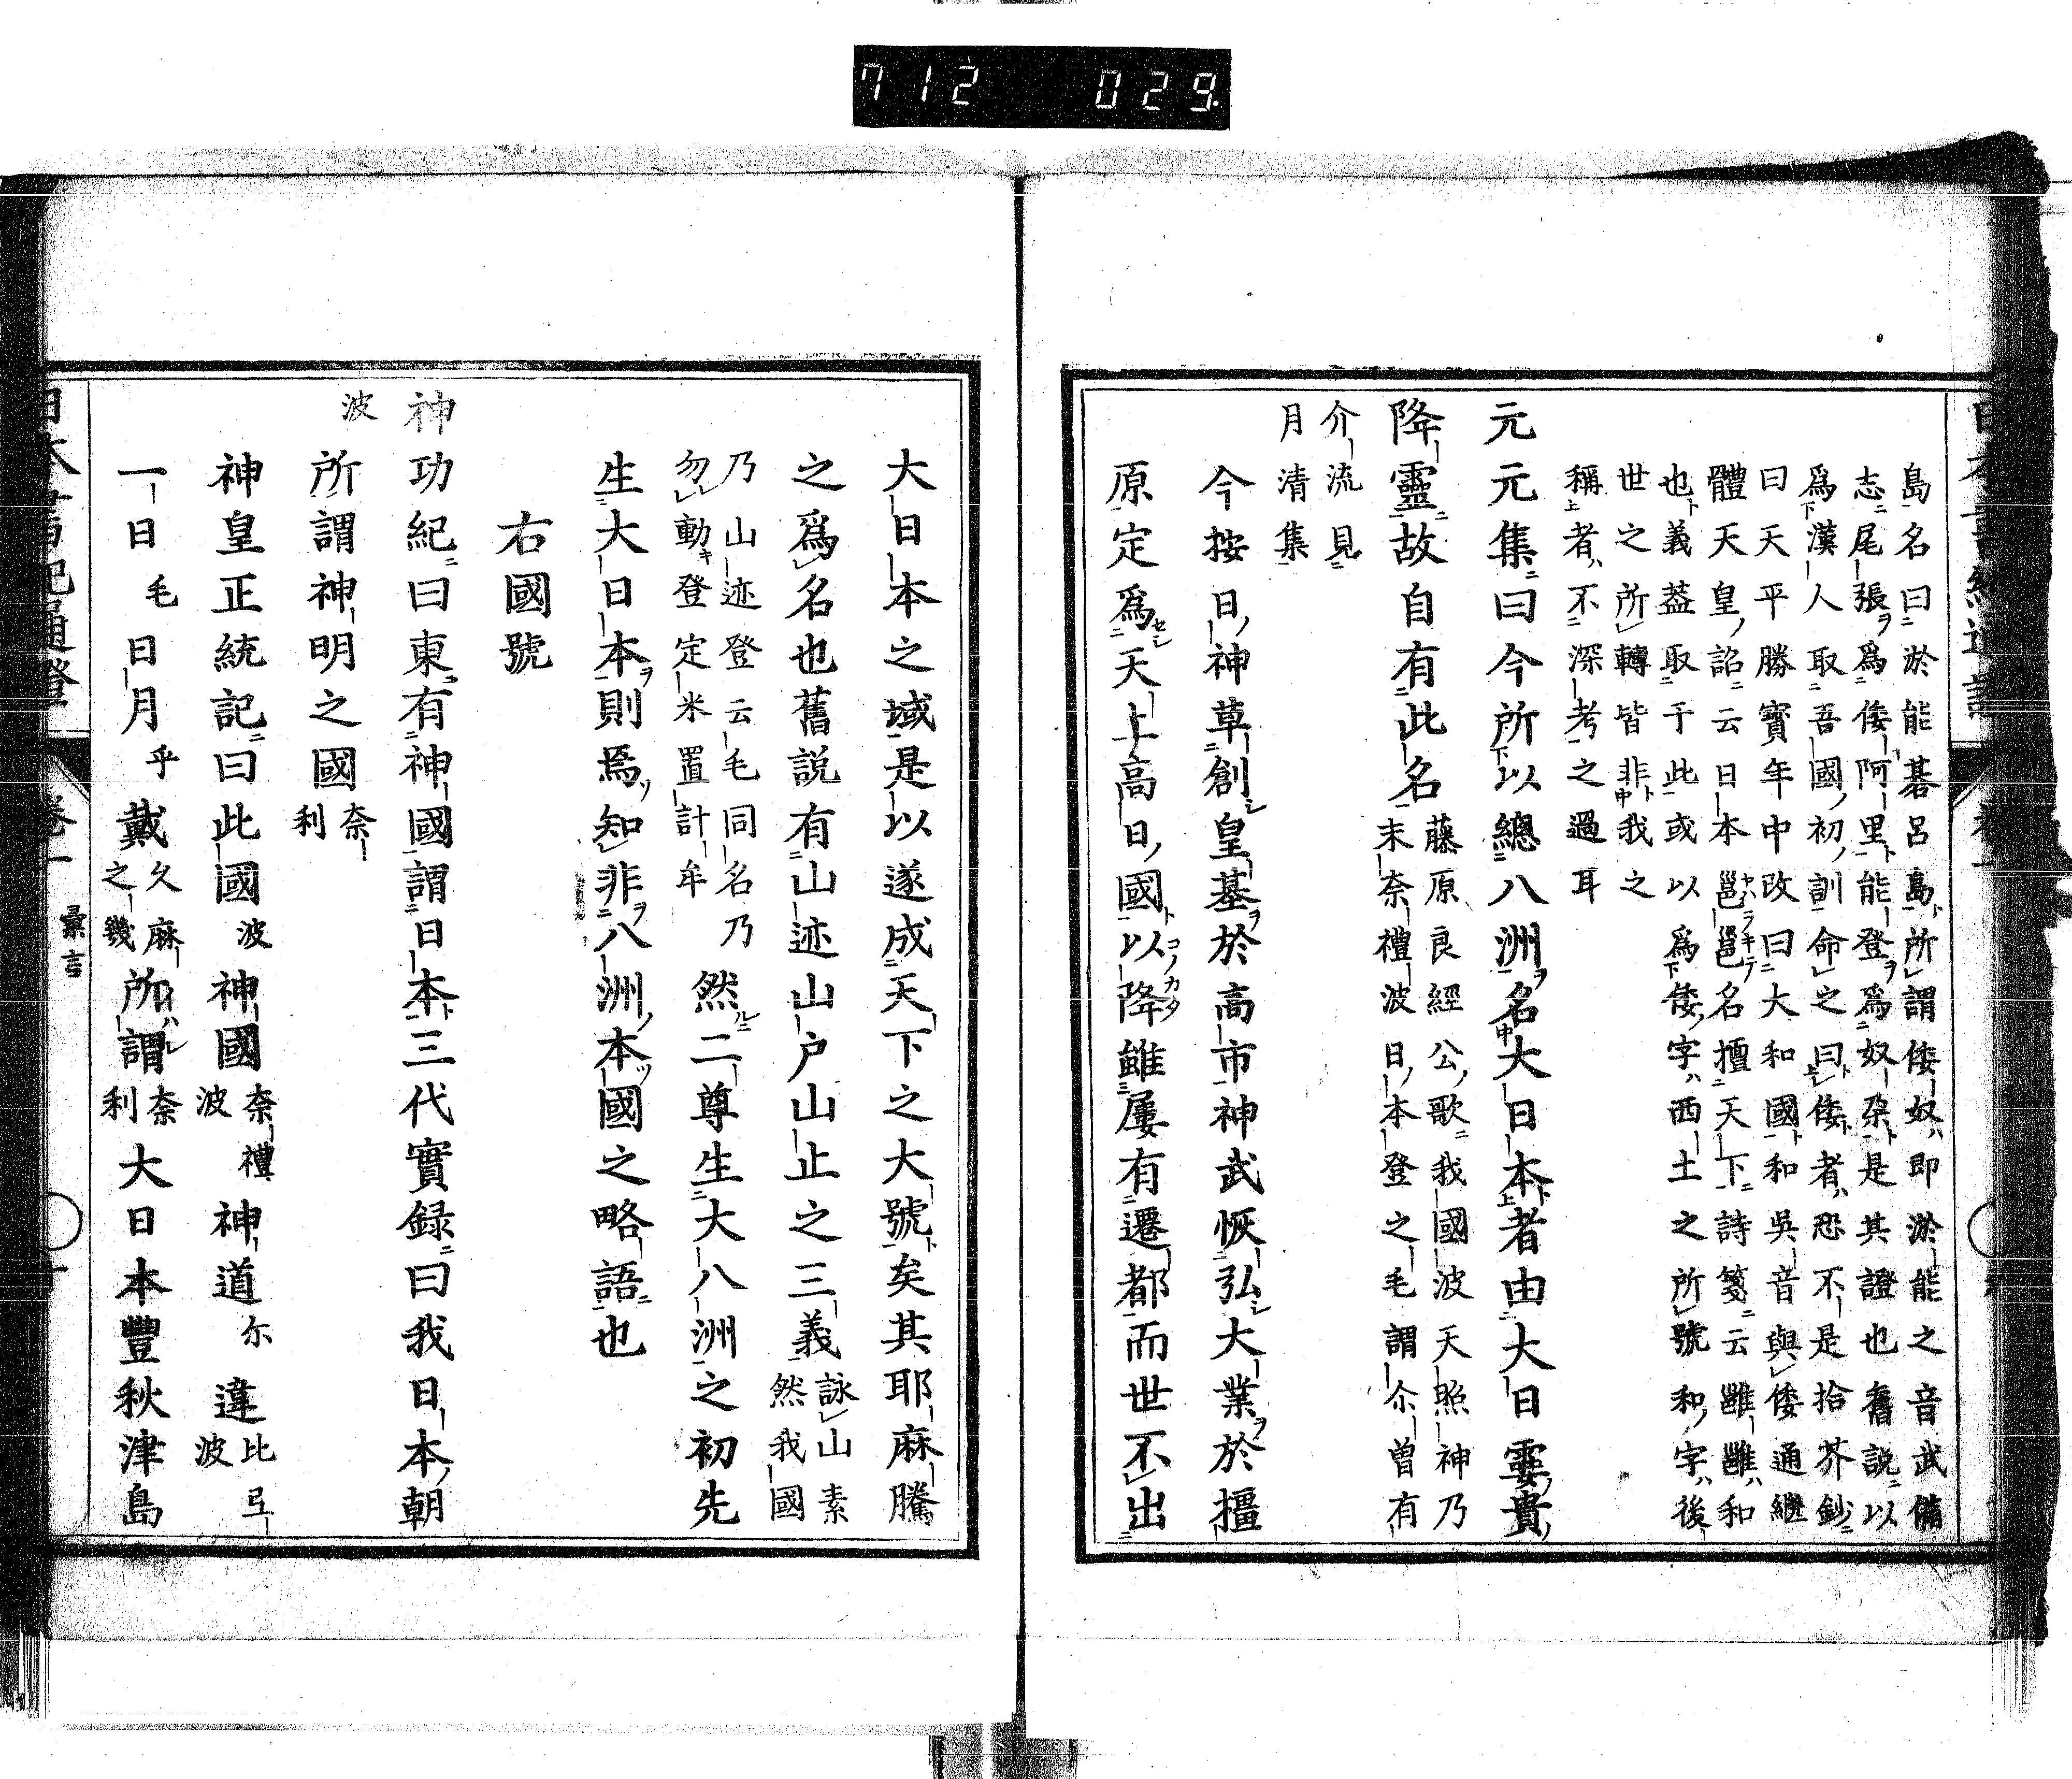 712 029
島名曰淤能碁呂島所謂倭奴即淤能之音武備
志尾張爲倭阿里能登爲奴朶是其證也舊說以
爲漢人取吾國初訓命之曰倭者恐不是拾芥鈔
曰天平勝寶年中改曰大和國和吳音與倭通繼
體天皇詔云日本邕邕名擅天下詩箋云雝雝和
也義蓋取于此或以爲倭字西土之所號和字後
世之所轉皆非我之
稱者不深考之過耳
元元集曰今所以總八洲名大日本者由大日孁貴
降靈故自有此名
藤原良經公歌我國波天照神乃
末奈禮波日本登之毛謂尒曽有
介流見
月清集
今按日神草創皇基於高市神武恢弘大業於橿
原定爲天上高日國以降雖屢有遷都而世不出
大日本之域是以遂成天下之大號矣其耶麻騰
之爲名也舊說有山迹山戸山止之三義
詠山素
然我國
乃山迹登云毛同名乃
勿動登定米置計牟
然二尊生大八洲之初先
生大日本則焉知非八洲本國之略語也
右國號
神功紀曰東有神國謂日本三代實録曰我日本朝
波
所謂神明之國
奈
利
神皇正統記曰此國波神國奈禮波神道尓違比弖波
一日毛日月乎戴久麻之幾所謂奈利大日本豐秋津島
日本書紀通證 卷一 彙言